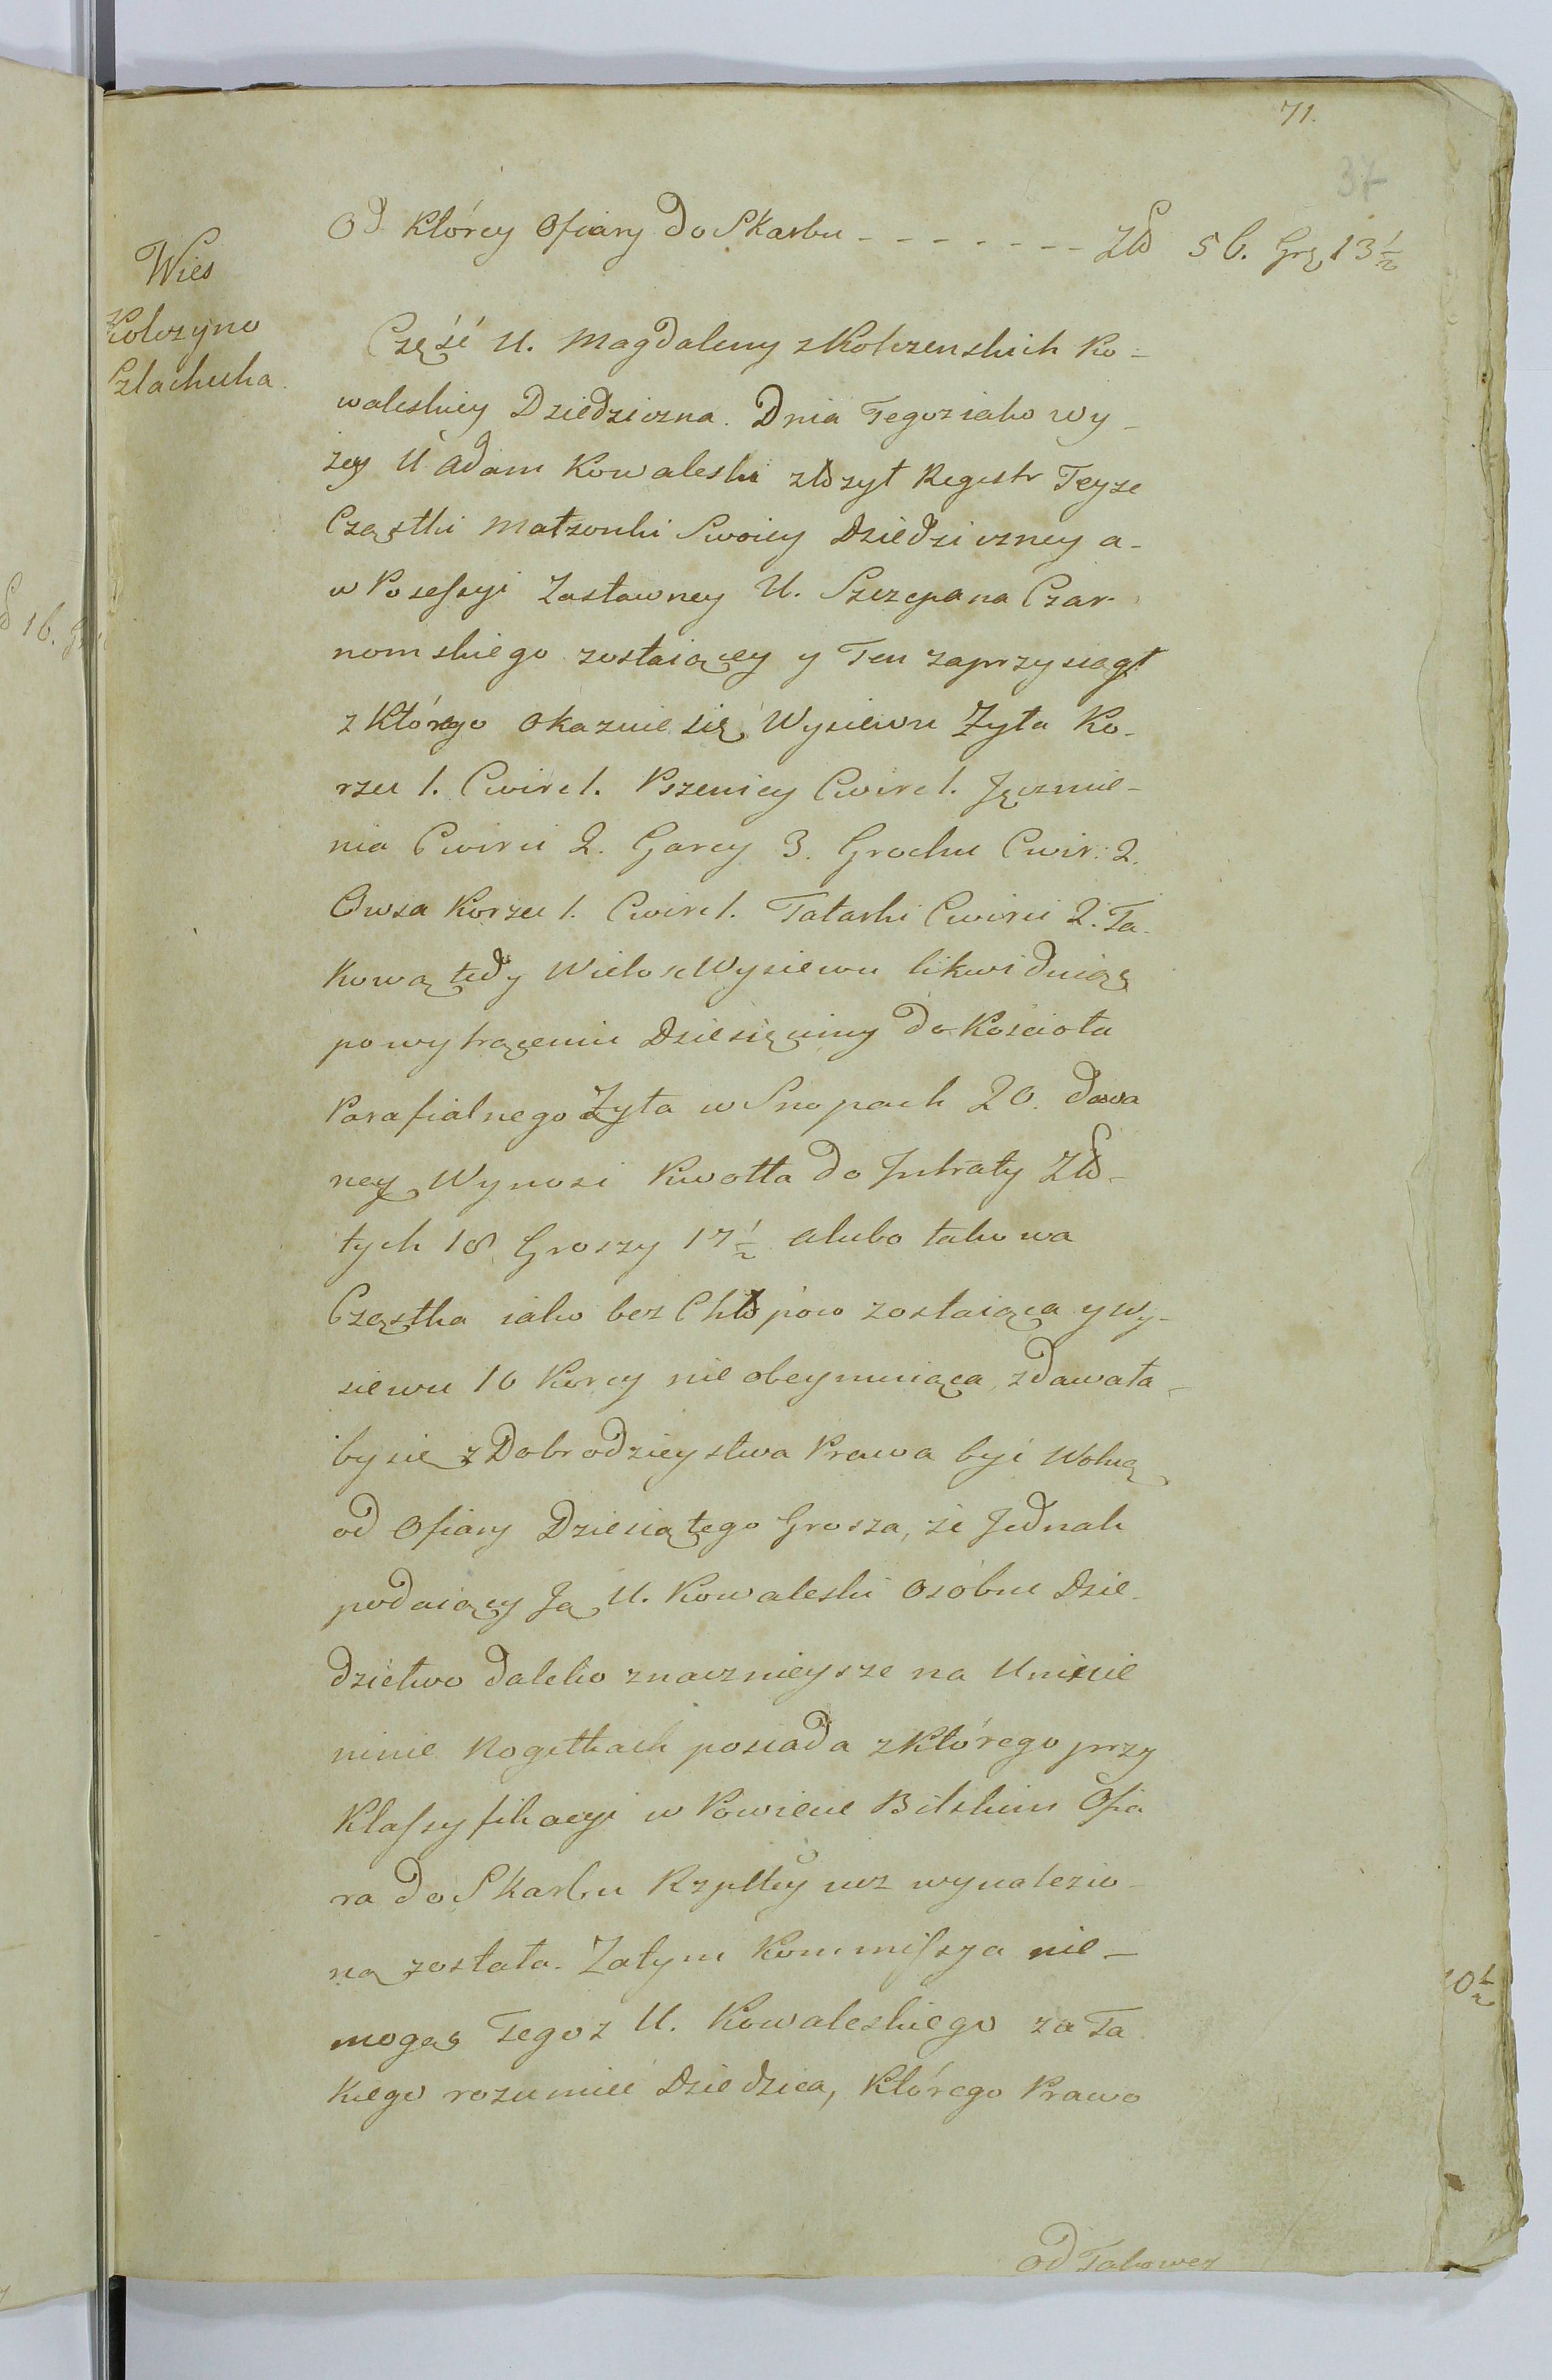 71.
37
Od Którey Ofiary do Skarbu - - - - - - - Zło 56. Grz 13 1/2
Wies
Kolczyno
Szlachecka.
Część U. Magdaleny z Kolczenskich Ko-
waleskiey Dziedziczna. Dnia Tegoz iako wy-
żey U Adam Kowaleski złożył Regestr Teyze
Cząstki Małzonki Swoiey Dziedziczney a-
w Posessyi Zastawney U. Szczepana Czar-
nomskiego zostaiącey y Ten zaprzysiągł
z Którego Okazuie się Wysiewu Zyta Ko-
rzec 1. Cwierc 1. Pszenicy Cwierc 1. Jęczmie-
nia Cwierci 2. Garcy 3. Grochu Cwir: 2.
Owsa Korzec 1. Cwierc 1. Tatarki Cwierci 2. Ta-
kową tedy Wielosc Wysiewu likwiduiąc
po wytrąceniu Dziesięciny do Kościoła
Parafialnego Zyta w Snopach 20. dawa
ney Wynosi Kwotta do Intraty Zło-
tych 18 Groszy 17 1/2 alubo takowa
Cząstka iako bez Chłopow zostaiąca y wy-
siewu 10 Korcy nie obeymuiąca, zdawała-
by sie z Dobrodzieystwa Prawa być Wolną
od Ofiary Dziesiątego Grosza, że Jednak
podaiący Ją U. Kowaleski Osóbne Dzie-
dzictwo daleko znacznieysze na
Rogotkach posiada z Którego przy
Klassyfikacyi w Powiecie Bilskim Ofia
ra do Skarbu Rzpltey iuz wynalezio-
ną została. Zatym Kommissya nie-
mogąc Tegoz U. Kowaleskiego za Ta
kiego rozumieć Dziedzica, Którego Prawo
od Takowey
16.
10 1/2